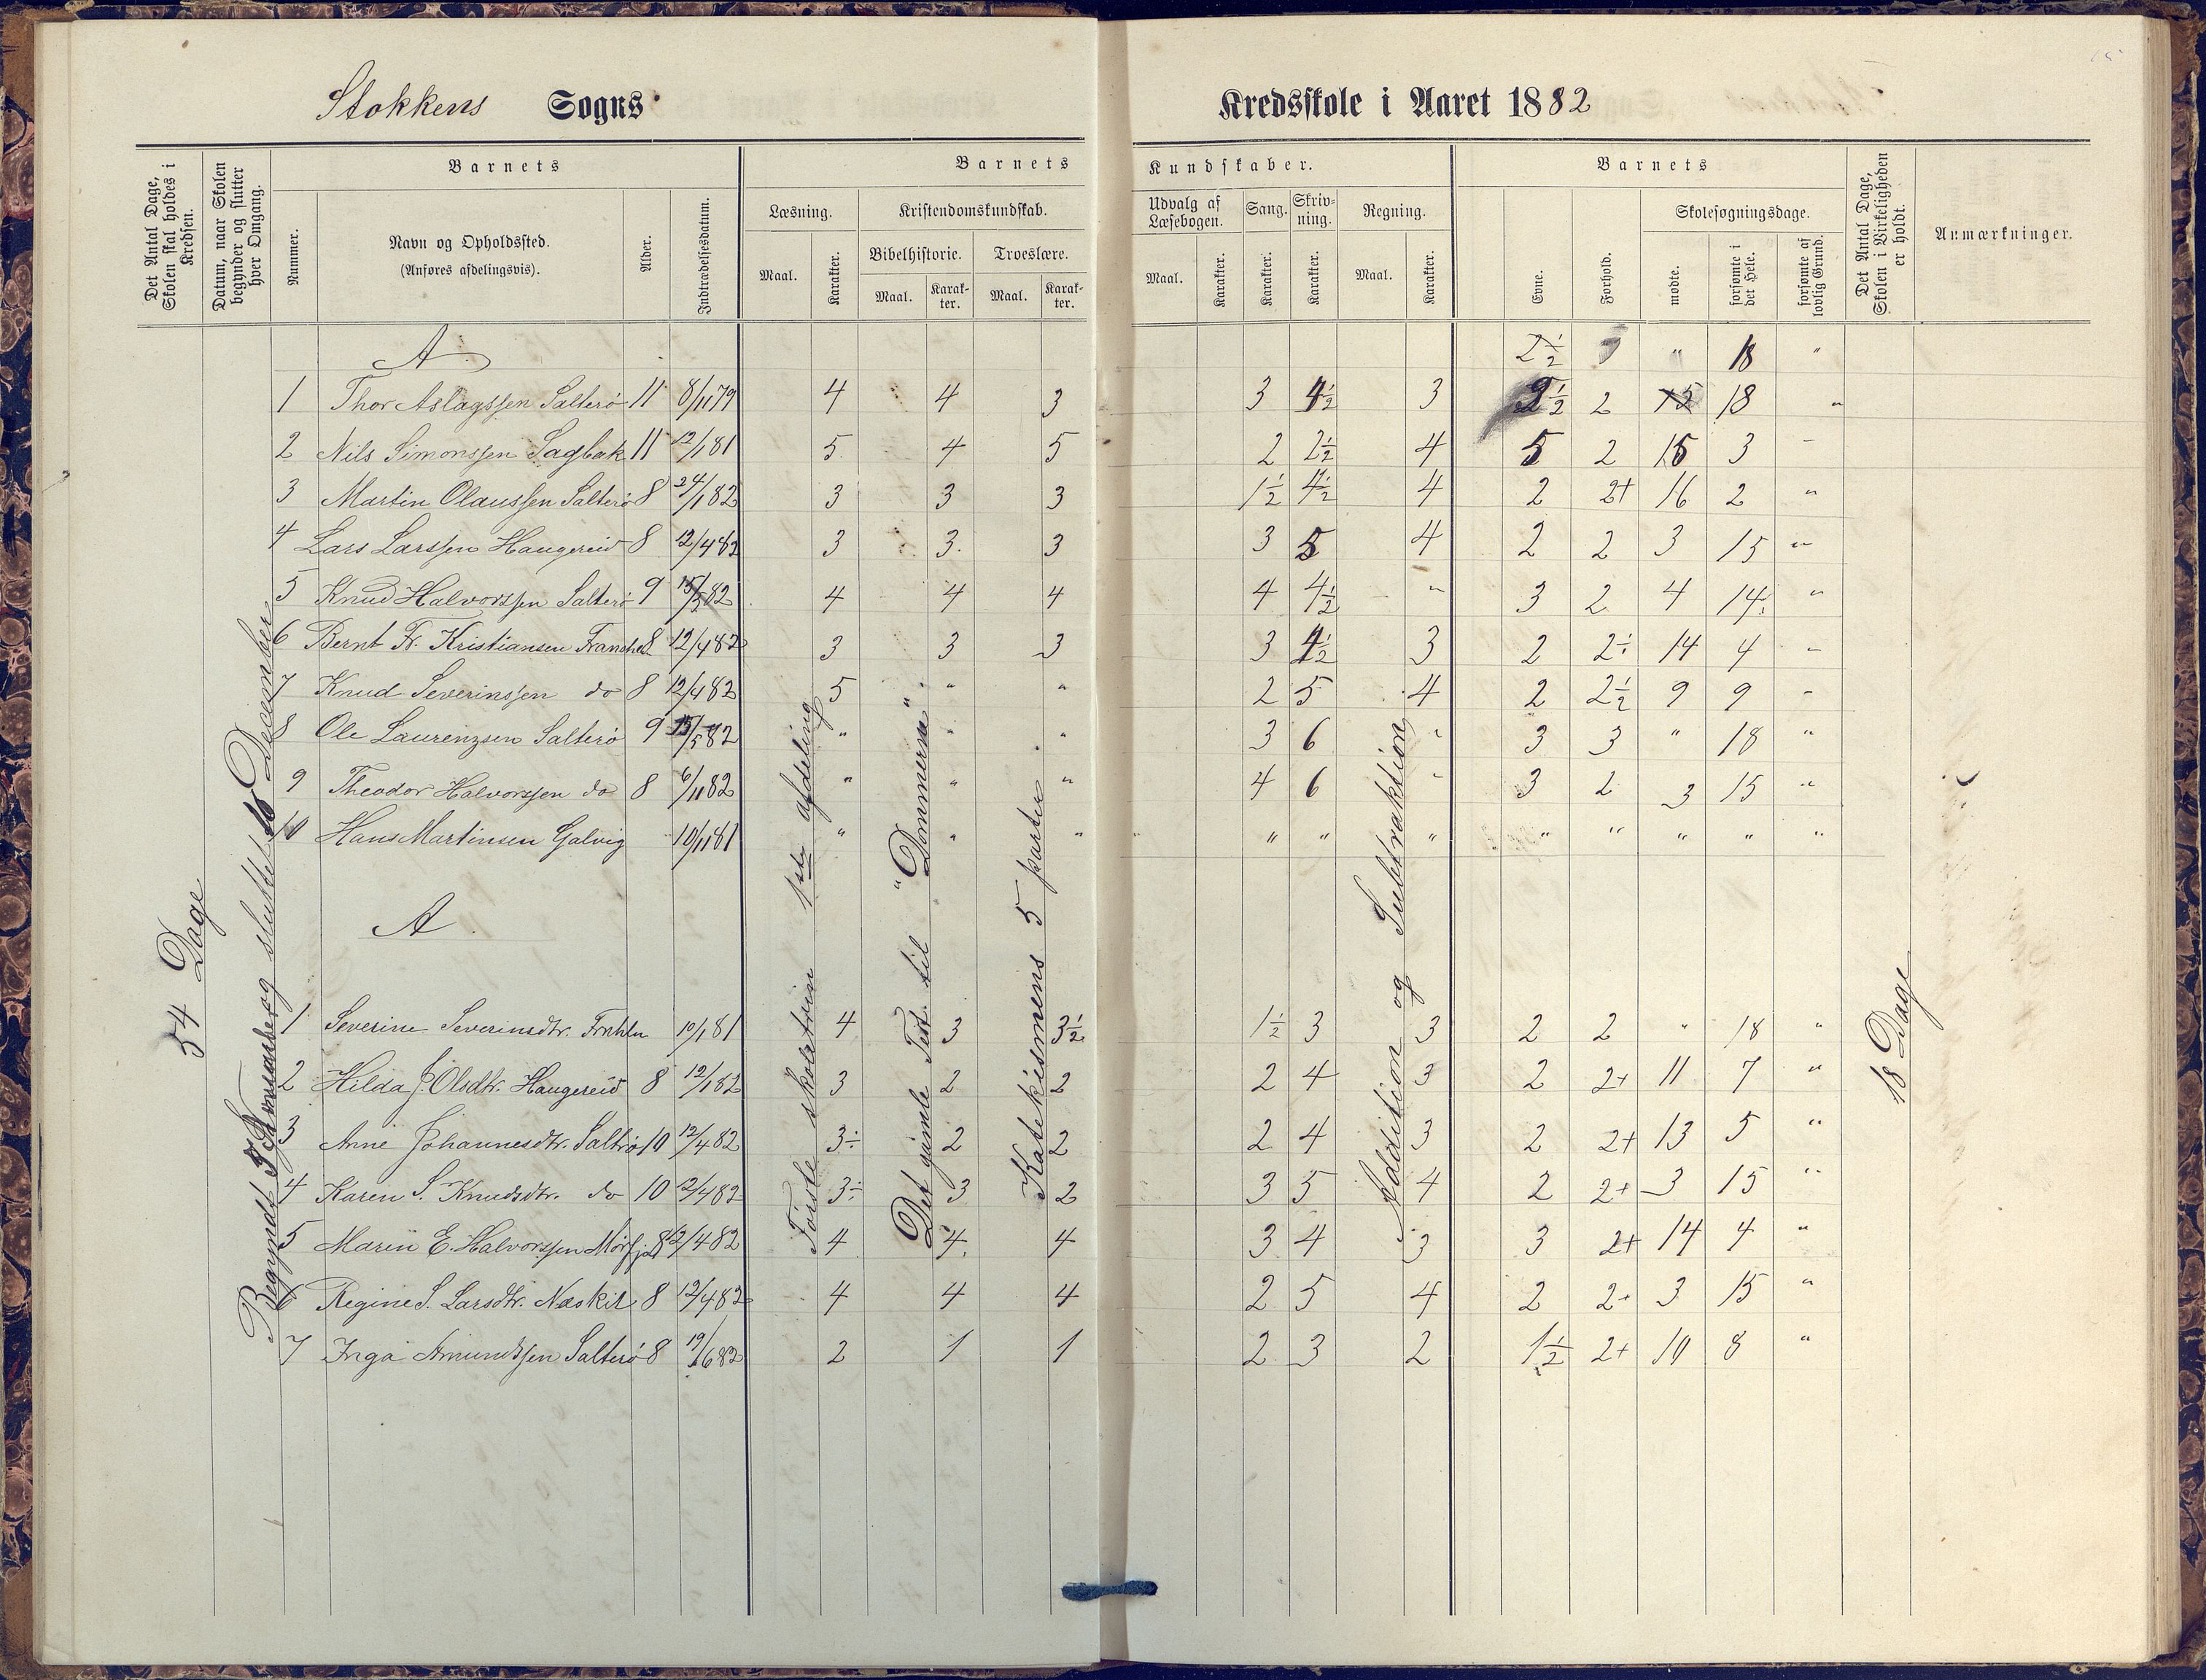 Stokkens Sogns Kredsskole i Aaret 1882
Det Antal Dage, Skolen skal holdes i Kredsen.
Datum, naar Skolen begynder og slutter hver Omgang.
Barnets
Nummer.
Navn og Opholdssted.
(Anføres afdelingsvis).
Alder.
Indtrædelsesdatum.
Barnets Kundskaber.
Læsning.
Maal. Karakter.
Kristendomskundskab.
Bibelhistorie.
Maal. Karakter.
Troeslære.
Maal. Karakter.
Udvalg af Læsebogen.
Maal. Karakter.
Sang.
Karakter.
Skrivning.
Karakter.
Regning.
Maal. Karakter.
Barnets
Evne. Forhold.
Skolesøgningsdage.
mødte. forsømte i det Hele. forsømte af lovlig Grund.
Det Antal Dage, Skolen i Virkeligheden er holdt.
Anmærkninger.
A 2½ " 18 "
1 Thor Aslagssen Salterö 11 8/11 79 4 4 3 3 4½ 3 2½ 2 15 18 "
2 Nils Simonssen Sagbak 11 12/1 81 5 4 5 2 2½ 4 5 2 15 3 -
3 Martin Olaussen Salterö 8 24/1 82 3 3 3 1½ 4½ 4 2 2+ 16 2 "
4 Lars Larssen Haugereid 8 12/4 82 3 3 3 3 5 4 2 2 3 15 "
5 Knud Halvorssen Salterö 9 15/5 82 4 4 4 4 4½ " 3 2 4 14 "
6 Bernt Fr. Kristiansen 8 12/4 82 3 3 3 3 4½ 3 2 2÷ 14 4 -
7 Knud Severinssen do 8 12/4 82 5 " " 2 5 4 2 2½ 9 9 -
8 Ole Laurenzsen Salterö 9 15/5 82 " " " 3 6 " 3 3 " 18 "
9 Theodor Halvorssen do 8 6/11 82 " " " 4 6 " 3 2 3 15 "
10 Hans Martinsen Galvig 10/11 81 " " " " " " " " " " "
A
1 Severine Severinsdtr. 10/1 81 4 3 3½ 1½ 3 3 2 2 " 18 "
2 Hilda J. Olsdtr. Haugereid 8 12/1 82 3 2 2 2 4 3 2 2+ 11 7 "
3 Anne Johannesdtr. Saltrö 10 12/4 82 3÷ 2 2 2 4 3 2 2+ 13 5 "
4 Karen S. Knudsdtr. do 10 12/4 82 3÷ 3 2 3 5 4 2 2+ 3 15 "
5 Maren E. Halvorssen 8 12/4 82 4 4 4 3 4 3 3 2+ 14 4 "
6 Regine S. Larsdtr. Næskil 8 12/4 82 4 4 4 2 5 4 2 2+ 3 15 "
7 Inga Amundssen Salterö 8 19/6 82 2 1 1 2 3 2 1½ 2+ 10 8 "
54 Dage
Begyndt og sluttet 16 December
Første skoletrin 1ste afdeling
Det gamle Test. til "Dommerne"
Katekismens 5 parter
Addition og Subtraktion
18 Dage